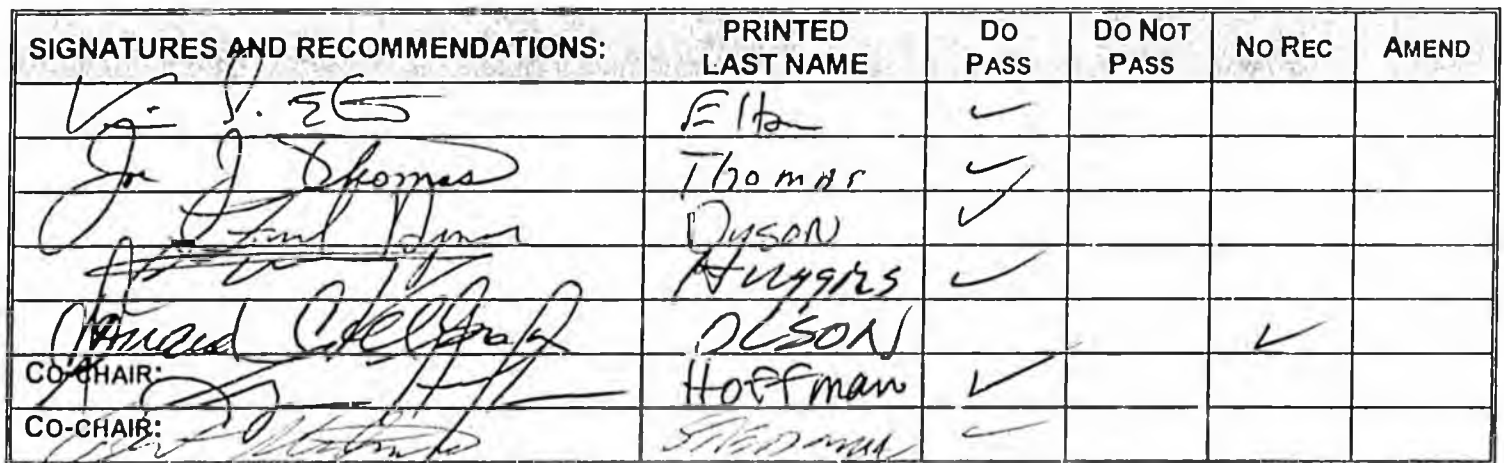 SIGNATURES AND RECOMMENDATIONS: PRINTED LAST NAME DO PASS DO NOT PASS NO REC AMEND
Elton ✓
Joe J. Thomas Thomas ✓
Fred Dyson Dyson ✓
Huggins ✓
Olson ✓
CO-CHAIR: Hoffman ✓
CO-CHAIR: ✓